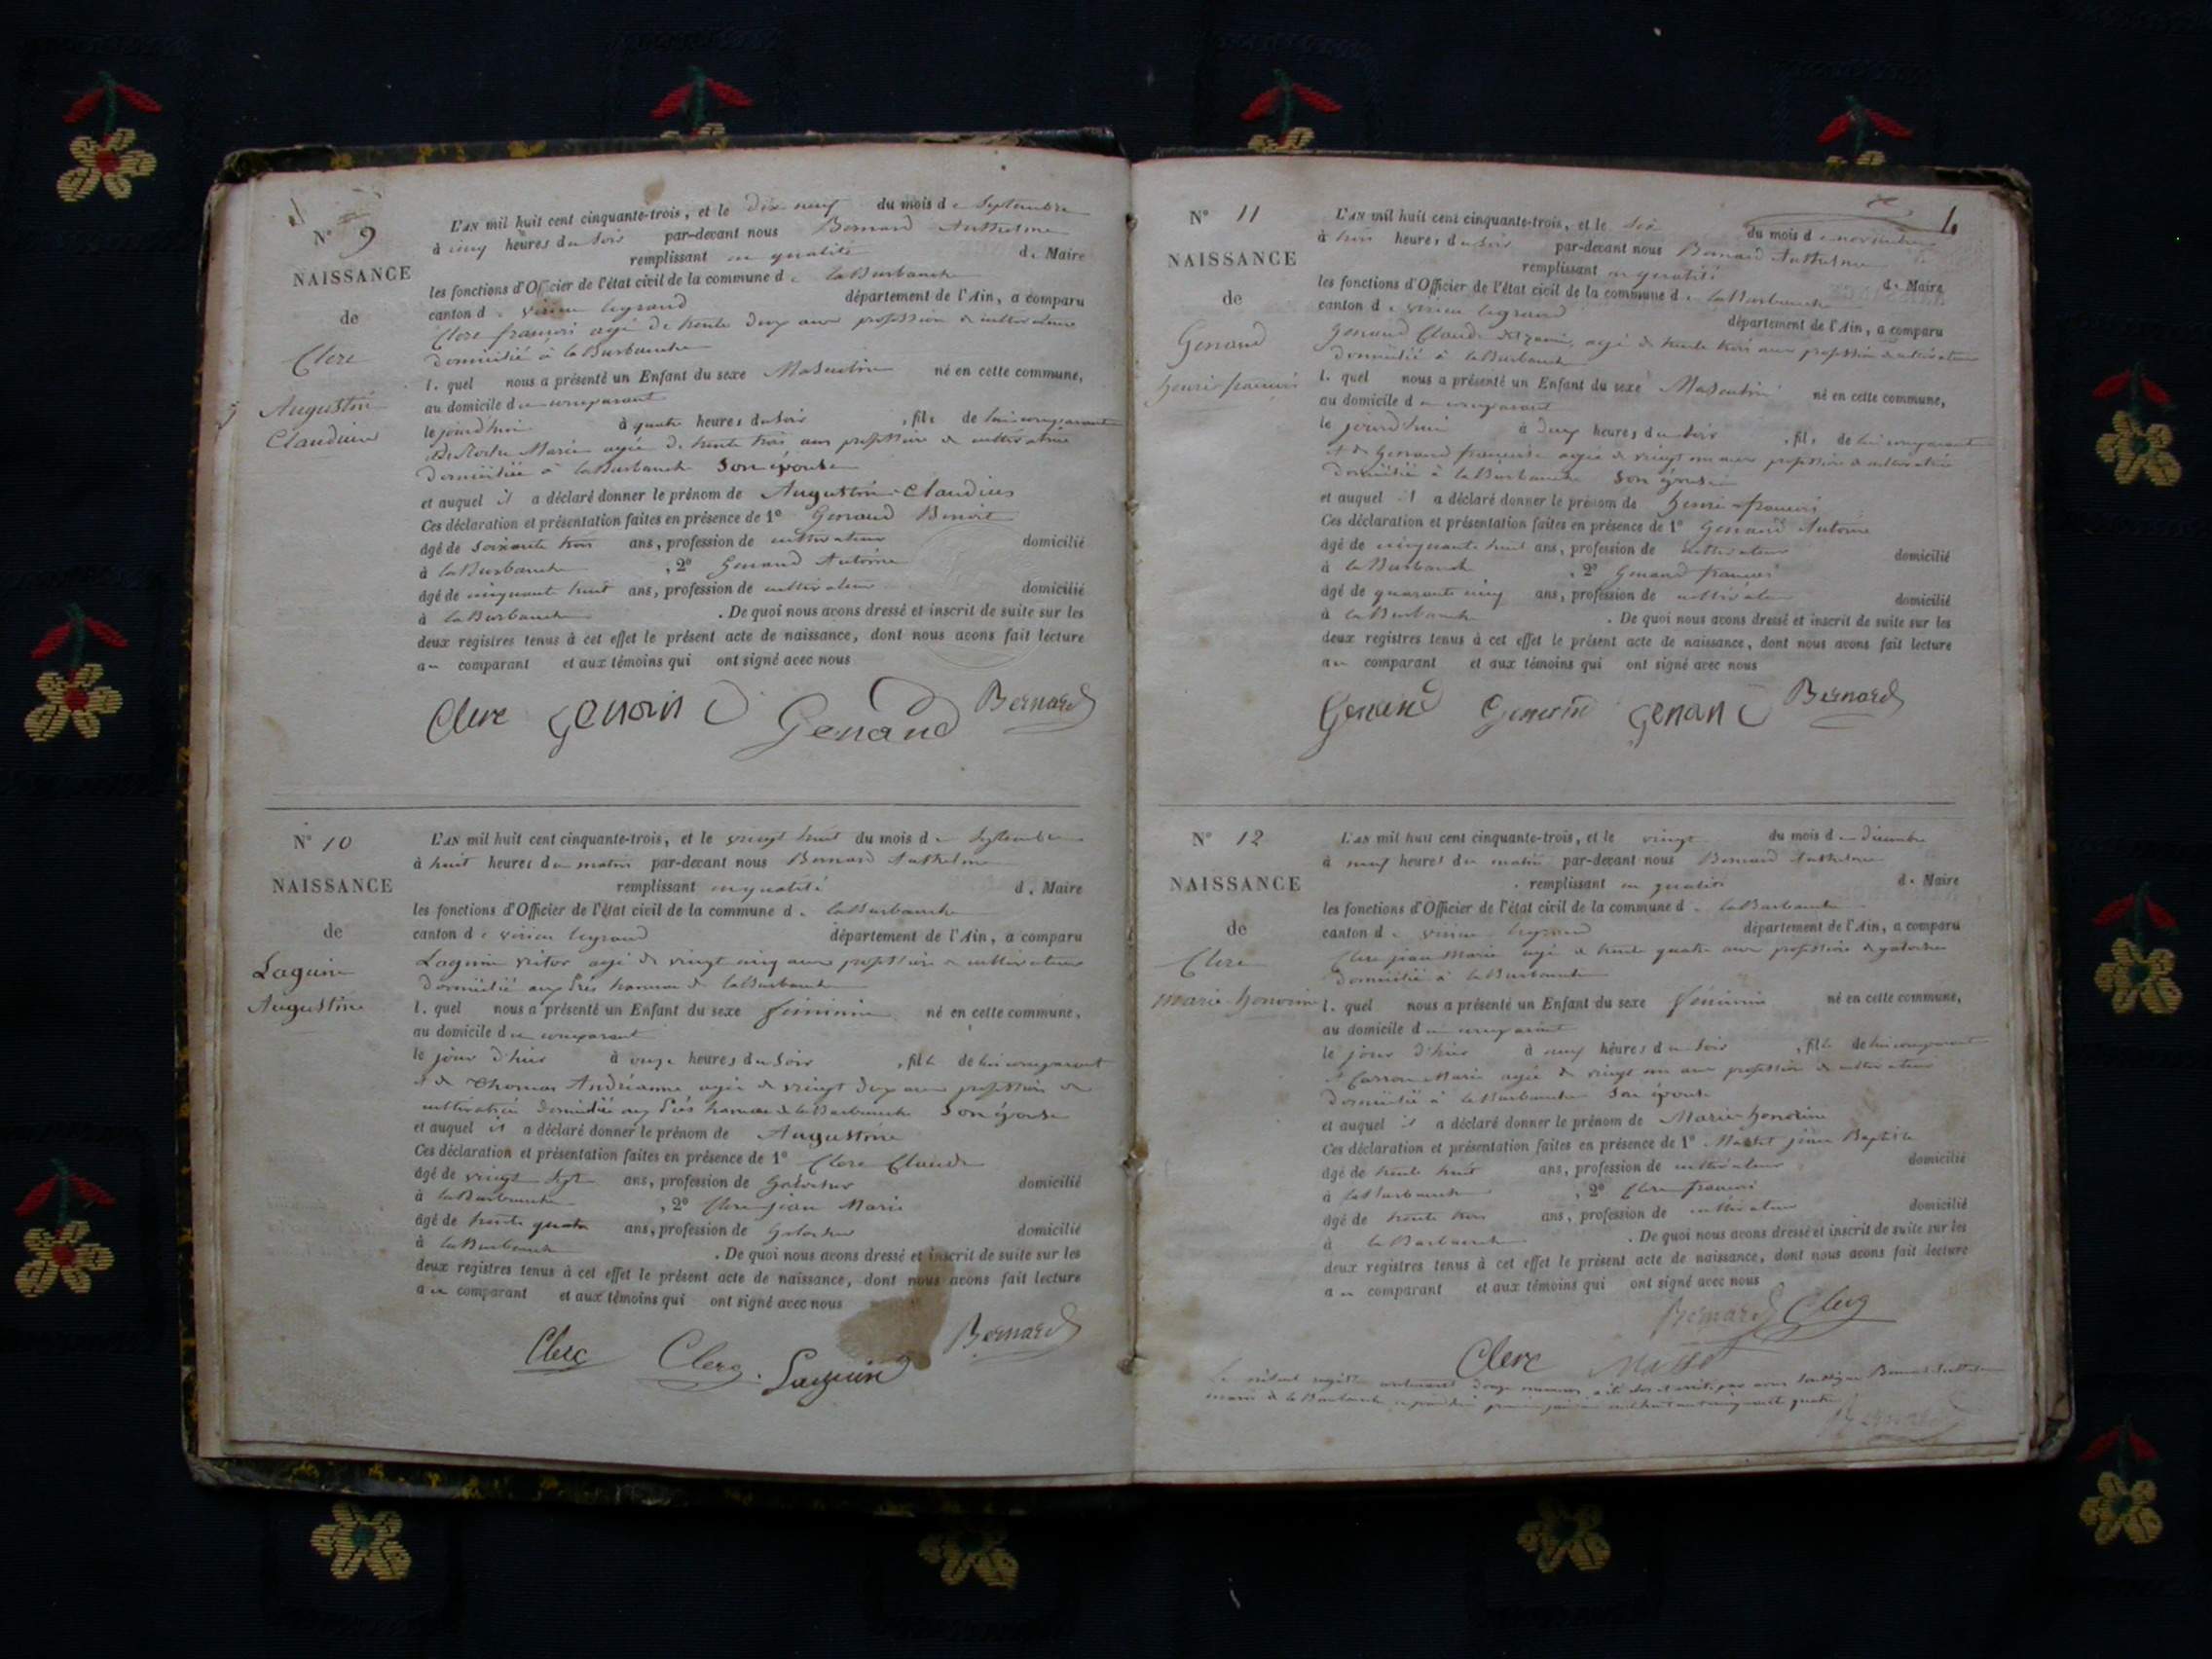 N° 9
NAISSANCE
de
Clerc
Augustin
Claudius
L'AN mil huit cent cinquante-trois, et le dix neuf du mois de Septembre
à cinq heures du soir par-devant nous Bernard Anthelme
remplissant en qualité de Maire
les fonctions d'Officier de l'état civil de la commune de laBurbanche
canton de virieu legrand département de l'Ain, a comparu
Clerc françois agé de trente deux ans profession de cultivateur
domicilié à laBurbanche
lequel nous a présenté un Enfant du sexe Masculin né en cette commune,
au domicile du comparant
le jourd'hui à quatre heures du soir, fils de lui comparant
Marie agée de trente trois ans profession de cultivatrice
domiciliée à laBurbanche Son épouse
et auquel il a déclaré donner le prénom de Augustin-Claudius
Ces déclaration et présentation faites en présence de 1° Genaud Benoit
âgé de soixante trois ans, profession de cultivateur domicilié
à laBurbanche, 2° Genaud Antoine
âgé de cinquante huit ans, profession de cultivateur domicilié
à laBurbanche. De quoi nous avons dressé et inscrit de suite sur les
deux registres tenus à cet effet le présent acte de naissance, dont nous avons fait lecture
au comparant et aux témoins qui ont signé avec nous
Clerc Genaud Genaud Bernard
N° 10
NAISSANCE
de
Laguin
Augustine
L'AN mil huit cent cinquante-trois, et le vingt huit du mois de Septembre
à huit heures du matin par-devant nous Bernard Anthelme
remplissant en qualité de Maire
les fonctions d'Officier de l'état civil de la commune de laBurbanche
canton de virieu legrand département de l'Ain, a comparu
Laguin victor agé de vingt cinq ans profession de cultivateur
domicilié aux hameau de laBurbanche
lequel nous a présenté un Enfant du sexe féminin né en cette commune,
au domicile du comparant
le jour d'hier à onze heures du soir, fille de lui comparant
et de Thomas Andréanne agée de vingt deux ans profession de
cultivatrice domiciliée aux hameau de laBurbanche Son épouse
et auquel il a déclaré donner le prénom de Augustine
Ces déclaration et présentation faites en présence de 1° Clerc Claude
âgé de vingt sept ans, profession de galocheur domicilié
à laBurbanche, 2° Clerc jean Marie
âgé de trente quatre ans, profession de Galocheur domicilié
à laBurbanche. De quoi nous avons dressé et inscrit de suite sur les
deux registres tenus à cet effet le présent acte de naissance, dont nous avons fait lecture
au comparant et aux témoins qui ont signé avec nous
Clerc Clerc Laguin Bernard
4
N° 11
NAISSANCE
de
Genaud
henri françois
L'AN mil huit cent cinquante-trois, et le dix du mois de novembre
à trois heures du soir par-devant nous Bernard Anthelme
remplissant en qualité de Maire
les fonctions d'Officier de l'état civil de la commune de laBurbanche
canton de virieu legrand département de l'Ain, a comparu
Genaud Claude agé de trente trois ans profession de cultivateur
domicilié à laBurbanche
lequel nous a présenté un Enfant du sexe Masculin né en cette commune,
au domicile du comparant
le jourd'hui à deux heures du soir, fils de lui comparant
et de Genaud françoise agée de vingt ans profession de cultivatrice
domiciliée à laBurbanche Son épouse
et auquel il a déclaré donner le prénom de henri-françois
Ces déclaration et présentation faites en présence de 1° Genaud Antoine
âgé de cinquante huit ans, profession de cultivateur domicilié
à laBurbanche, 2° Genaud françois
âgé de quarante cinq ans, profession de cultivateur domicilié
à laBurbanche. De quoi nous avons dressé et inscrit de suite sur les
deux registres tenus à cet effet le présent acte de naissance, dont nous avons fait lecture
au comparant et aux témoins qui ont signé avec nous
Genaud Genaud Genaud Bernard
N° 12
NAISSANCE
de
Clerc
Marie-honorine
L'AN mil huit cent cinquante-trois, et le vingt du mois de décembre
à neuf heures du matin par-devant nous Bernard Anthelme
remplissant en qualité de Maire
les fonctions d'Officier de l'état civil de la commune de laBurbanche
canton de virieu legrand département de l'Ain, a comparu
Clerc jean-Marie agé de trente quatre ans profession de galocheur
domicilié à laBurbanche
lequel nous a présenté un Enfant du sexe féminin né en cette commune,
au domicile du comparant
le jour d'hier à neuf heures du soir, fille de lui comparant
et Carron Marie agée de vingt ans profession de cultivateur
domiciliée à laBurbanche Son épouse
et auquel il a déclaré donner le prénom de Marie-honorine
Ces déclaration et présentation faites en présence de 1° jean Baptiste
âgé de trente huit ans, profession de cultivateur domicilié
à laBurbanche, 2° Clerc françois
âgé de trente trois ans, profession de cultivateur domicilié
à laBurbanche. De quoi nous avons dressé et inscrit de suite sur les
deux registres tenus à cet effet le présent acte de naissance, dont nous avons fait lecture
au comparant et aux témoins qui ont signé avec nous
Bernard Clerc
Clerc
Le présent registre contenant douze numéros a été clos et arrêté par nous soussigné Bernard Anthelme
maire de laBurbanche janvier mil huit cent cinquante quatre
Bernard